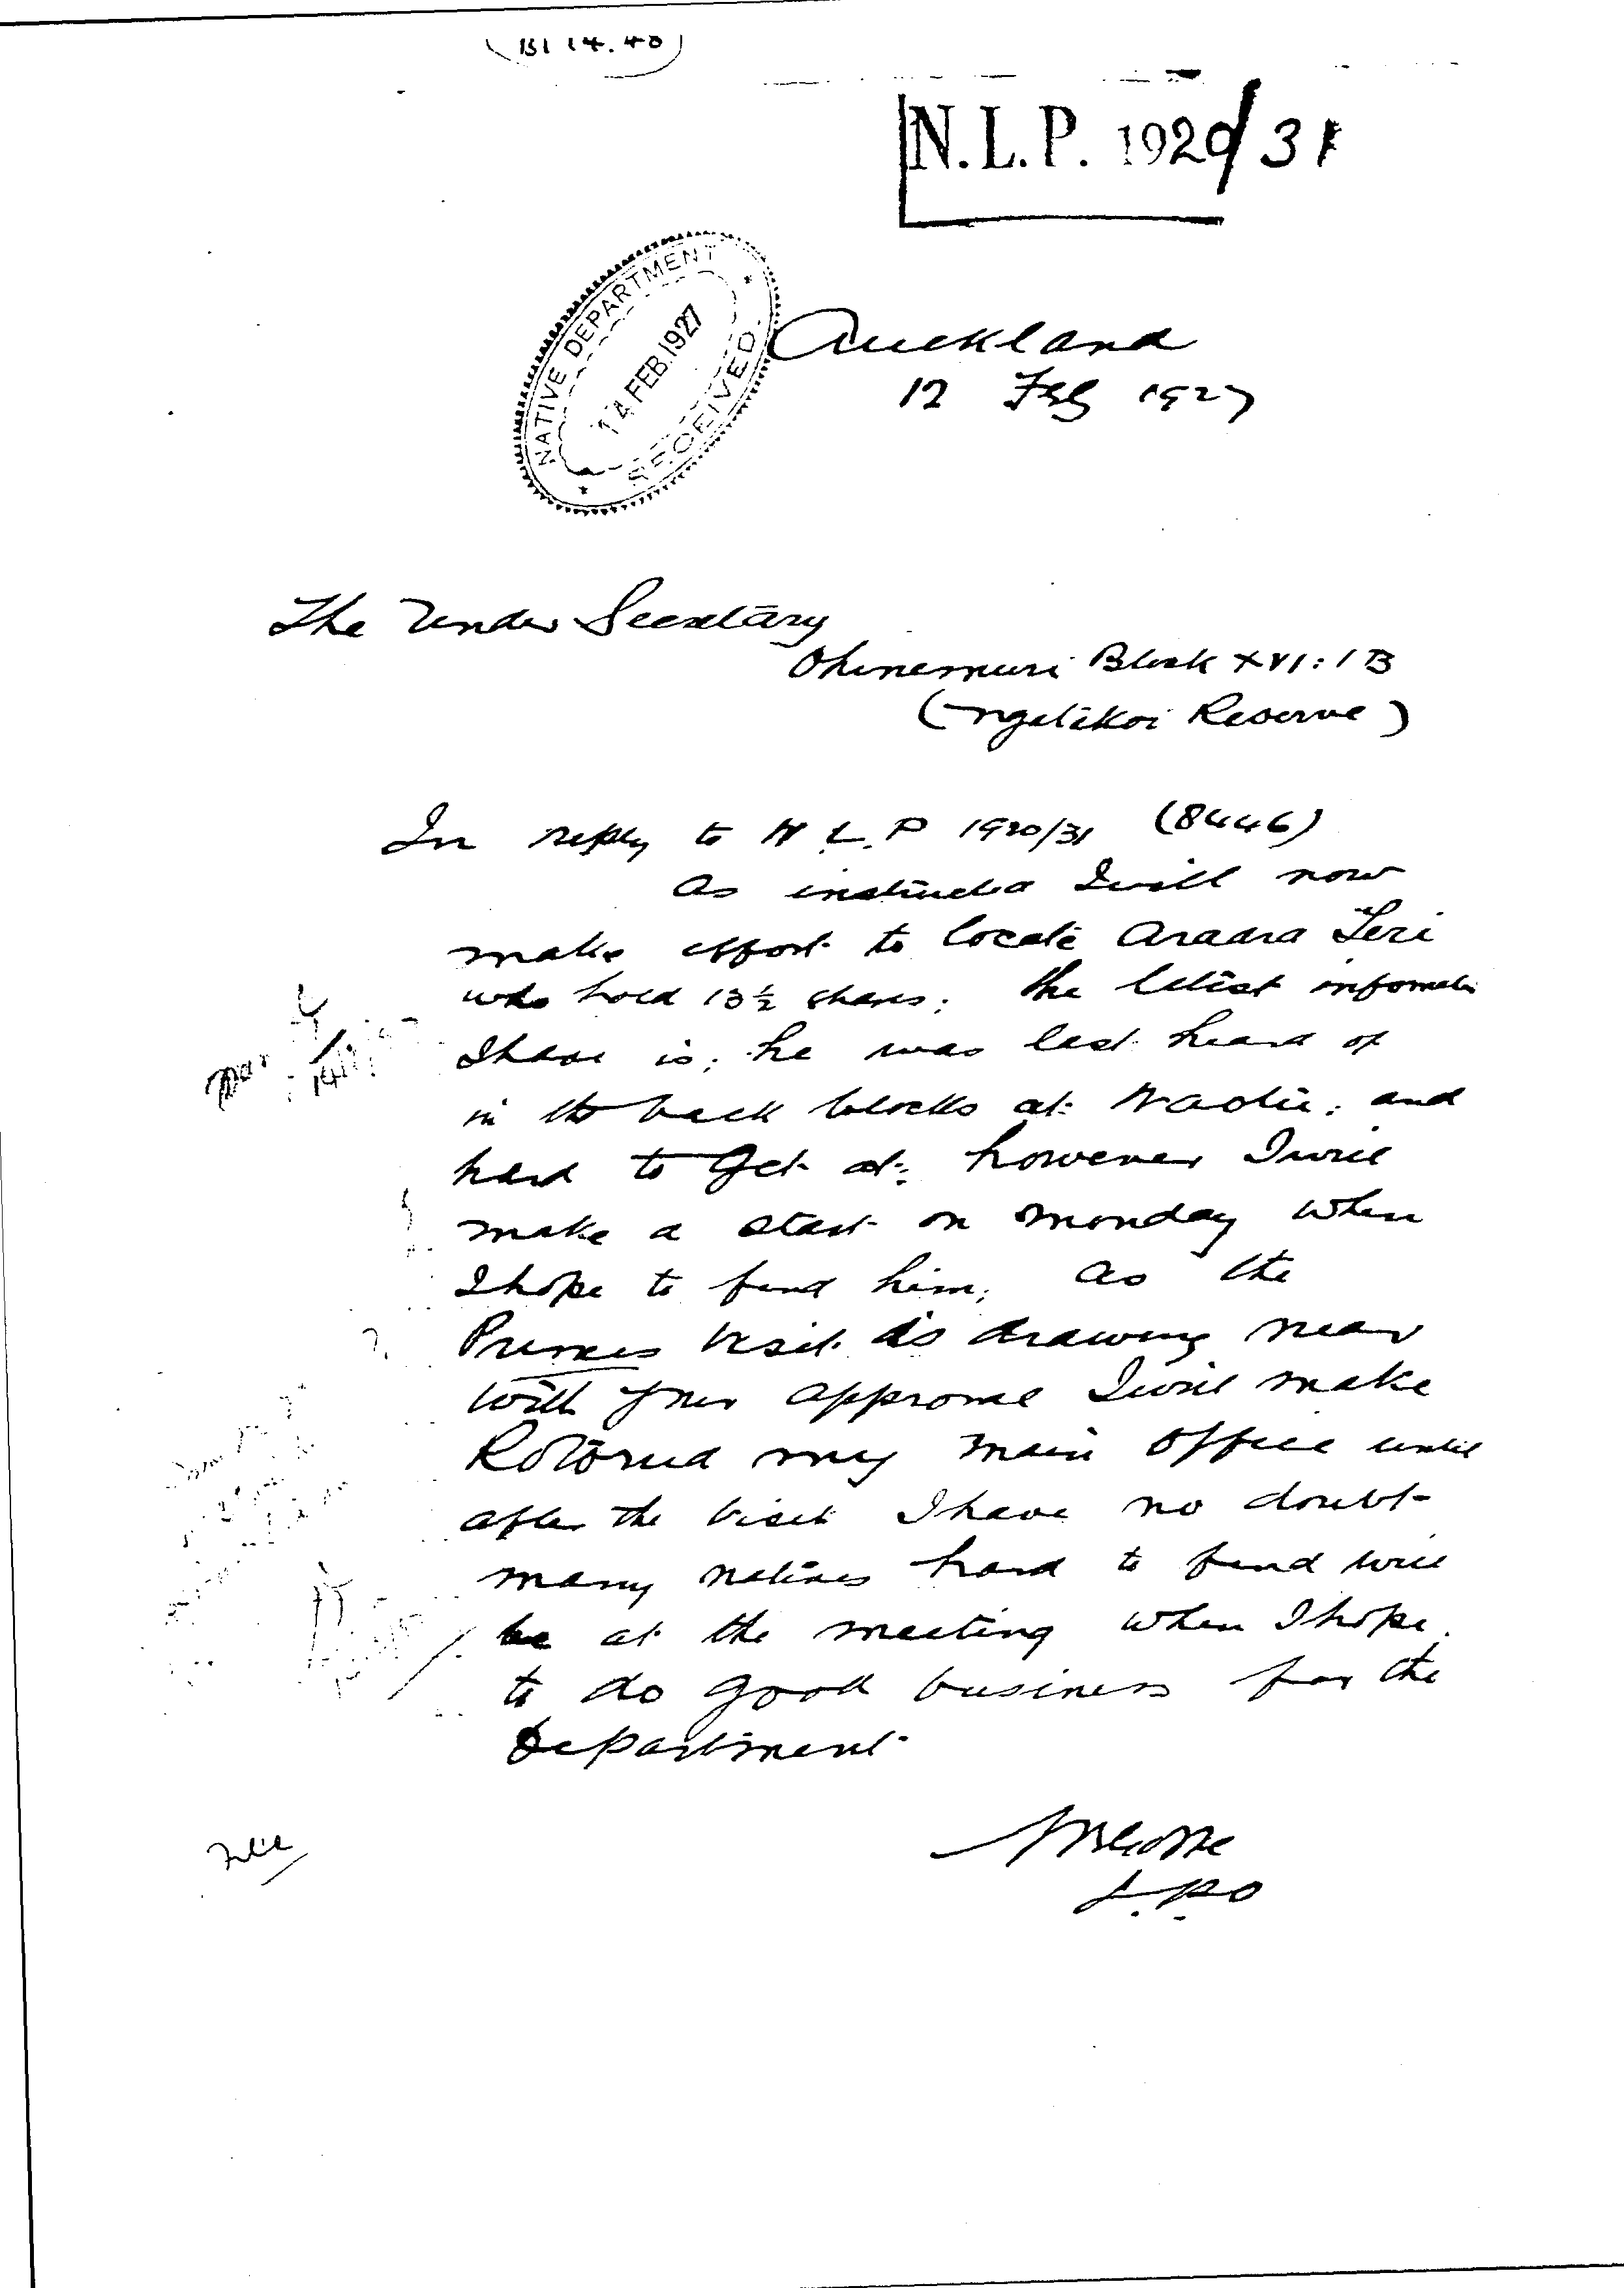 (BI 14.40)
N.L.P. 1920/31
NATIVE DEPARTMENT
14 FEB. 1927
RECEIVED.
Auckland
12 Feb 1927
The Under Secretary
Ohinemuri Block XVI: 1 B
(Ngatikoi Reserve)
In reply to N.L.P 1920/31 (8446)
As instructed I will now
make effort to locate Araara Teri
who hold 13½ shares; the latest informatn
I have is; he was last heard of
in the back blocks at and
hard to get at; however I will
make a start on Monday when
I hope to find him; as the
Princes visit is drawing near
with your approval I will make
Rotorua my main office until
after the visit I have no doubt
many natives hard to find will
be at the meeting when I hope
to do good business for the
Department
L.P.O
File